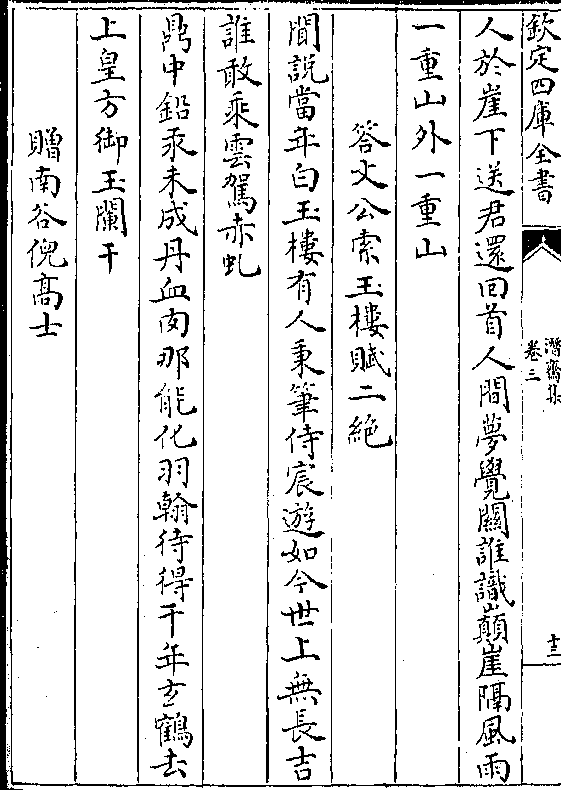 欽定四庫全書
潛齋集
卷三
十三
人於崖下送君還回首人間夢覺關誰識巓崖隔風雨
一重山外一重山
答文公索玉樓賦二絶
聞說當年白玉樓有人秉筆侍宸遊如今世上無長吉
誰敢乘雲駕赤虬
鼎中鉛汞未成丹血肉那能化羽翰待得千年玄鶴去
上皇方御玉闌干
贈南谷倪髙士